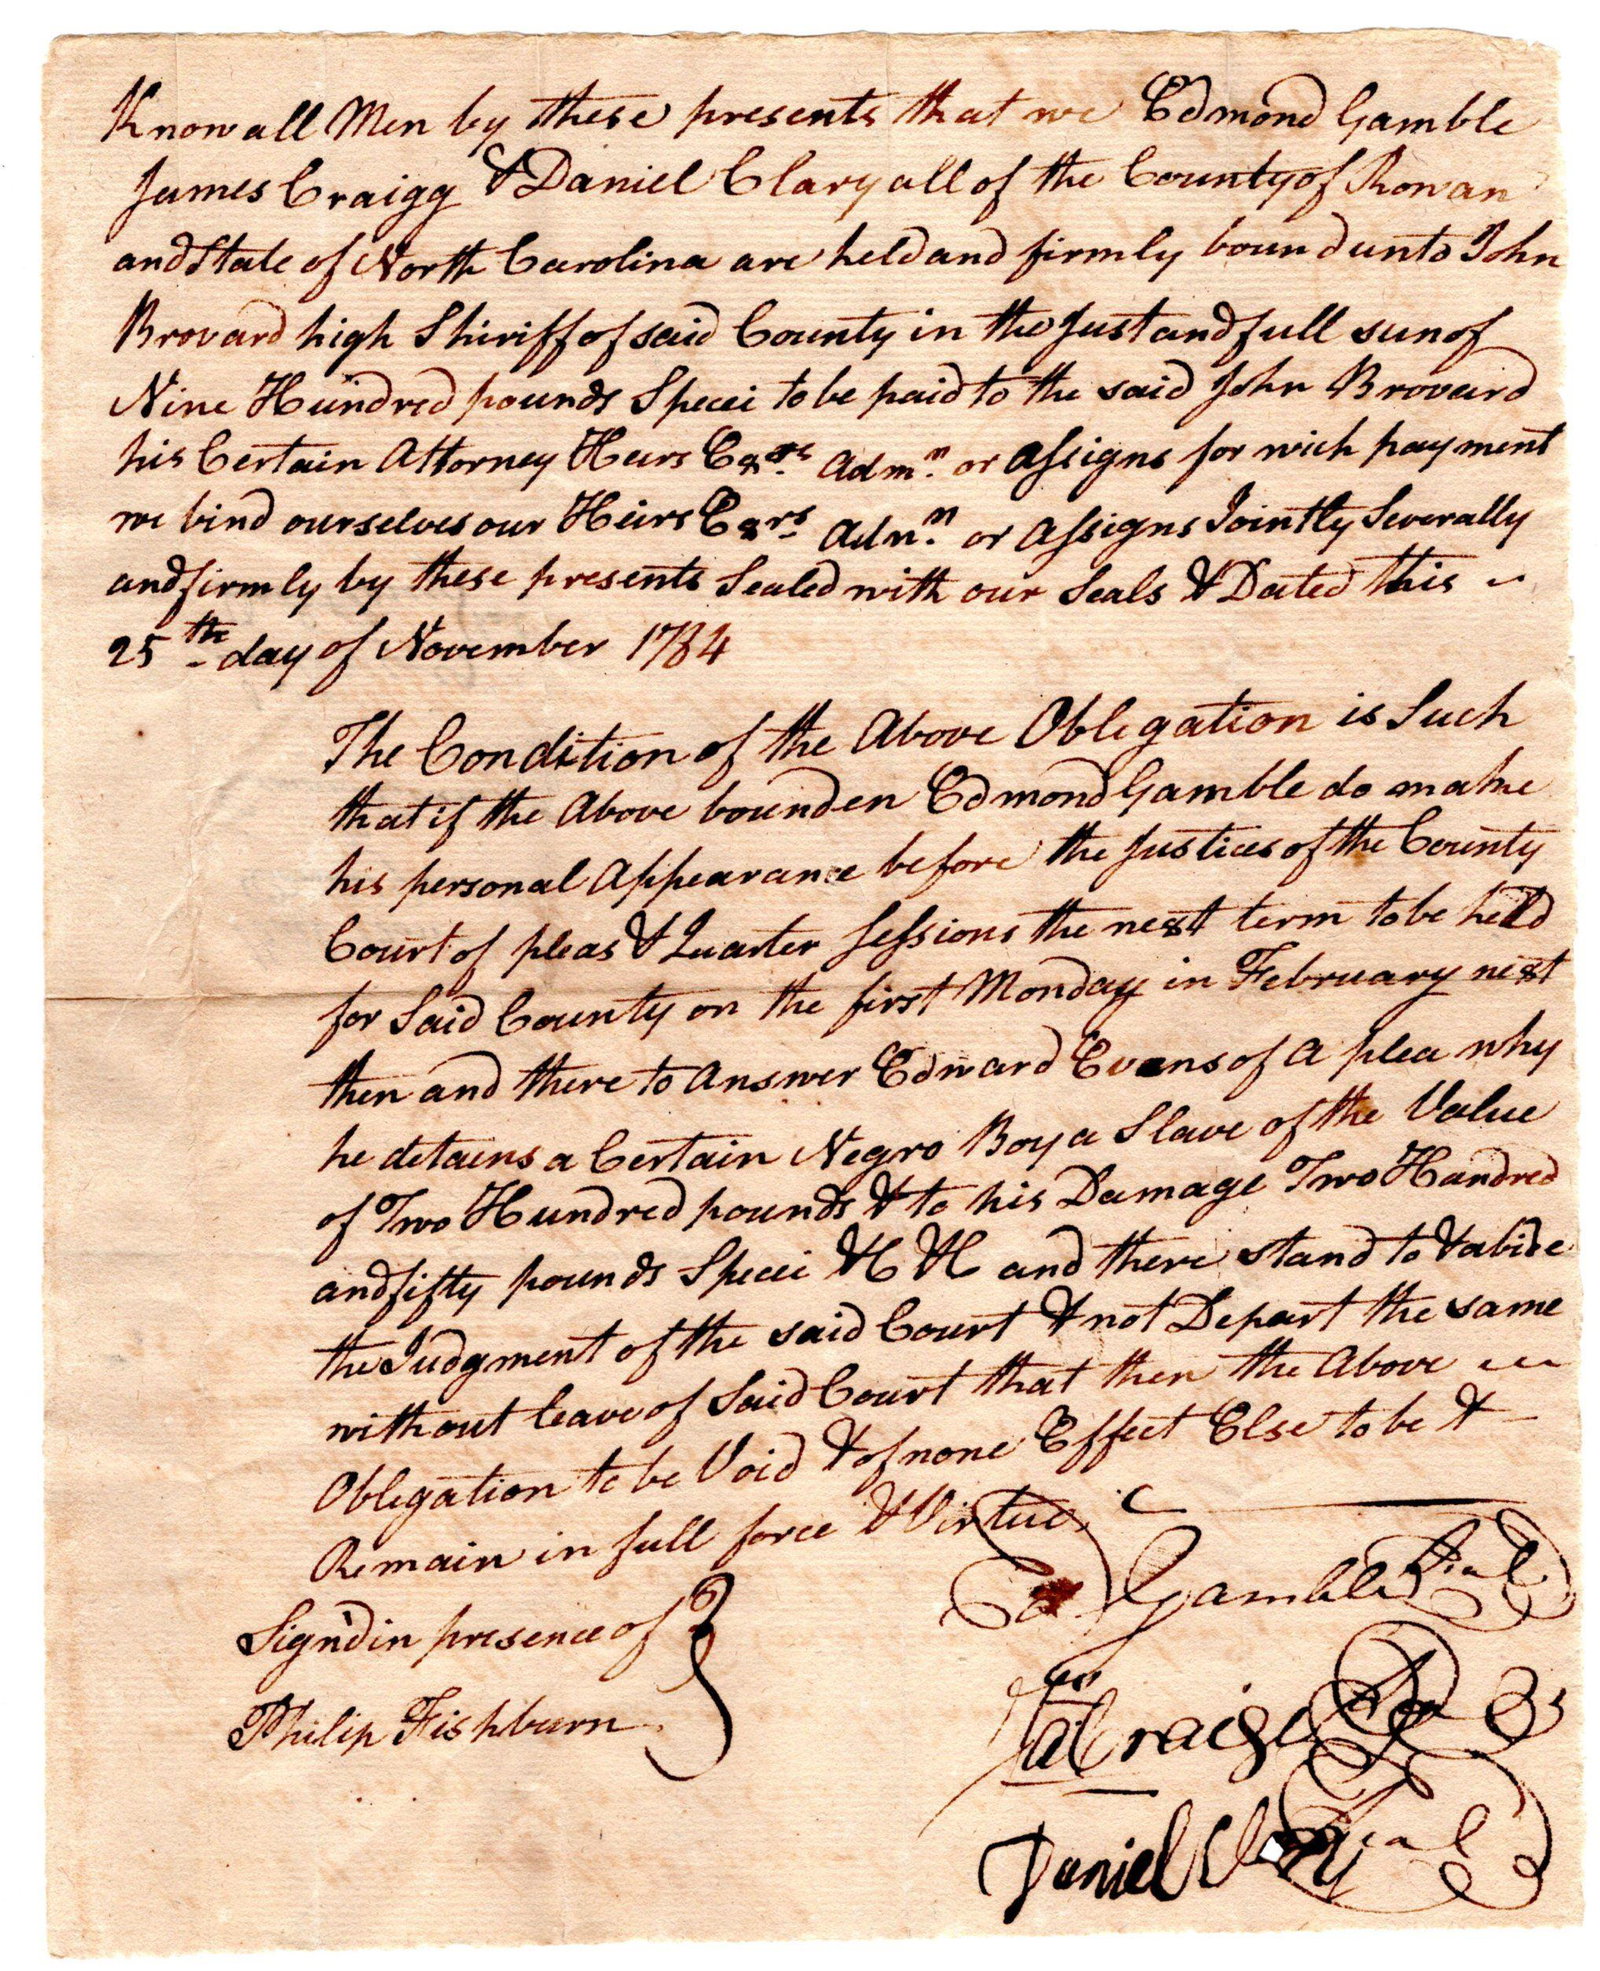 Know all Men by these presents that we Edmond Gamble
James Craigg & Daniel Clary all of the County of Rowan
and State of North Carolina are held and firmly bound unto John
Brovard high Shiriff of said County in the Just and full sun of
Nine Hundred pounds Specei to be paid to the said John Brovard
his Certain Attorney Heirs Exrs Admn. or assigns for wich payment
we bind ourselves our Heirs Exrs Admn. or assigns Jointly Severally
and firmly by these presents Sealed with our Seals & Dated this
25th day of November 1784
The Condition of the Above Obligation is Such
that if the Above bounden Edmond Gamble do make
his personal Appearance before the Justices of the County
Court of pleas & Quarter Sessions the next term to be held
for Said County on the first Monday in February next
then and there to answer Edward Evens of a plea why
he detains a Certain Negro Boy a Slave of the Value
of Two Hundred pounds & to his Damage Two Hundred
and fifty pounds Specei &C &C and there stand to & abide
the Judgment of the said Court & not Depart the same
without leave of Said Court that then the Above
Obligation to be Void & of none Effect Else to be &
Remain in full force & Virtue
Ed Gamble Seal
Signd in presence of
Jas Craige
Philip Fishburn
Daniel Clary Seal